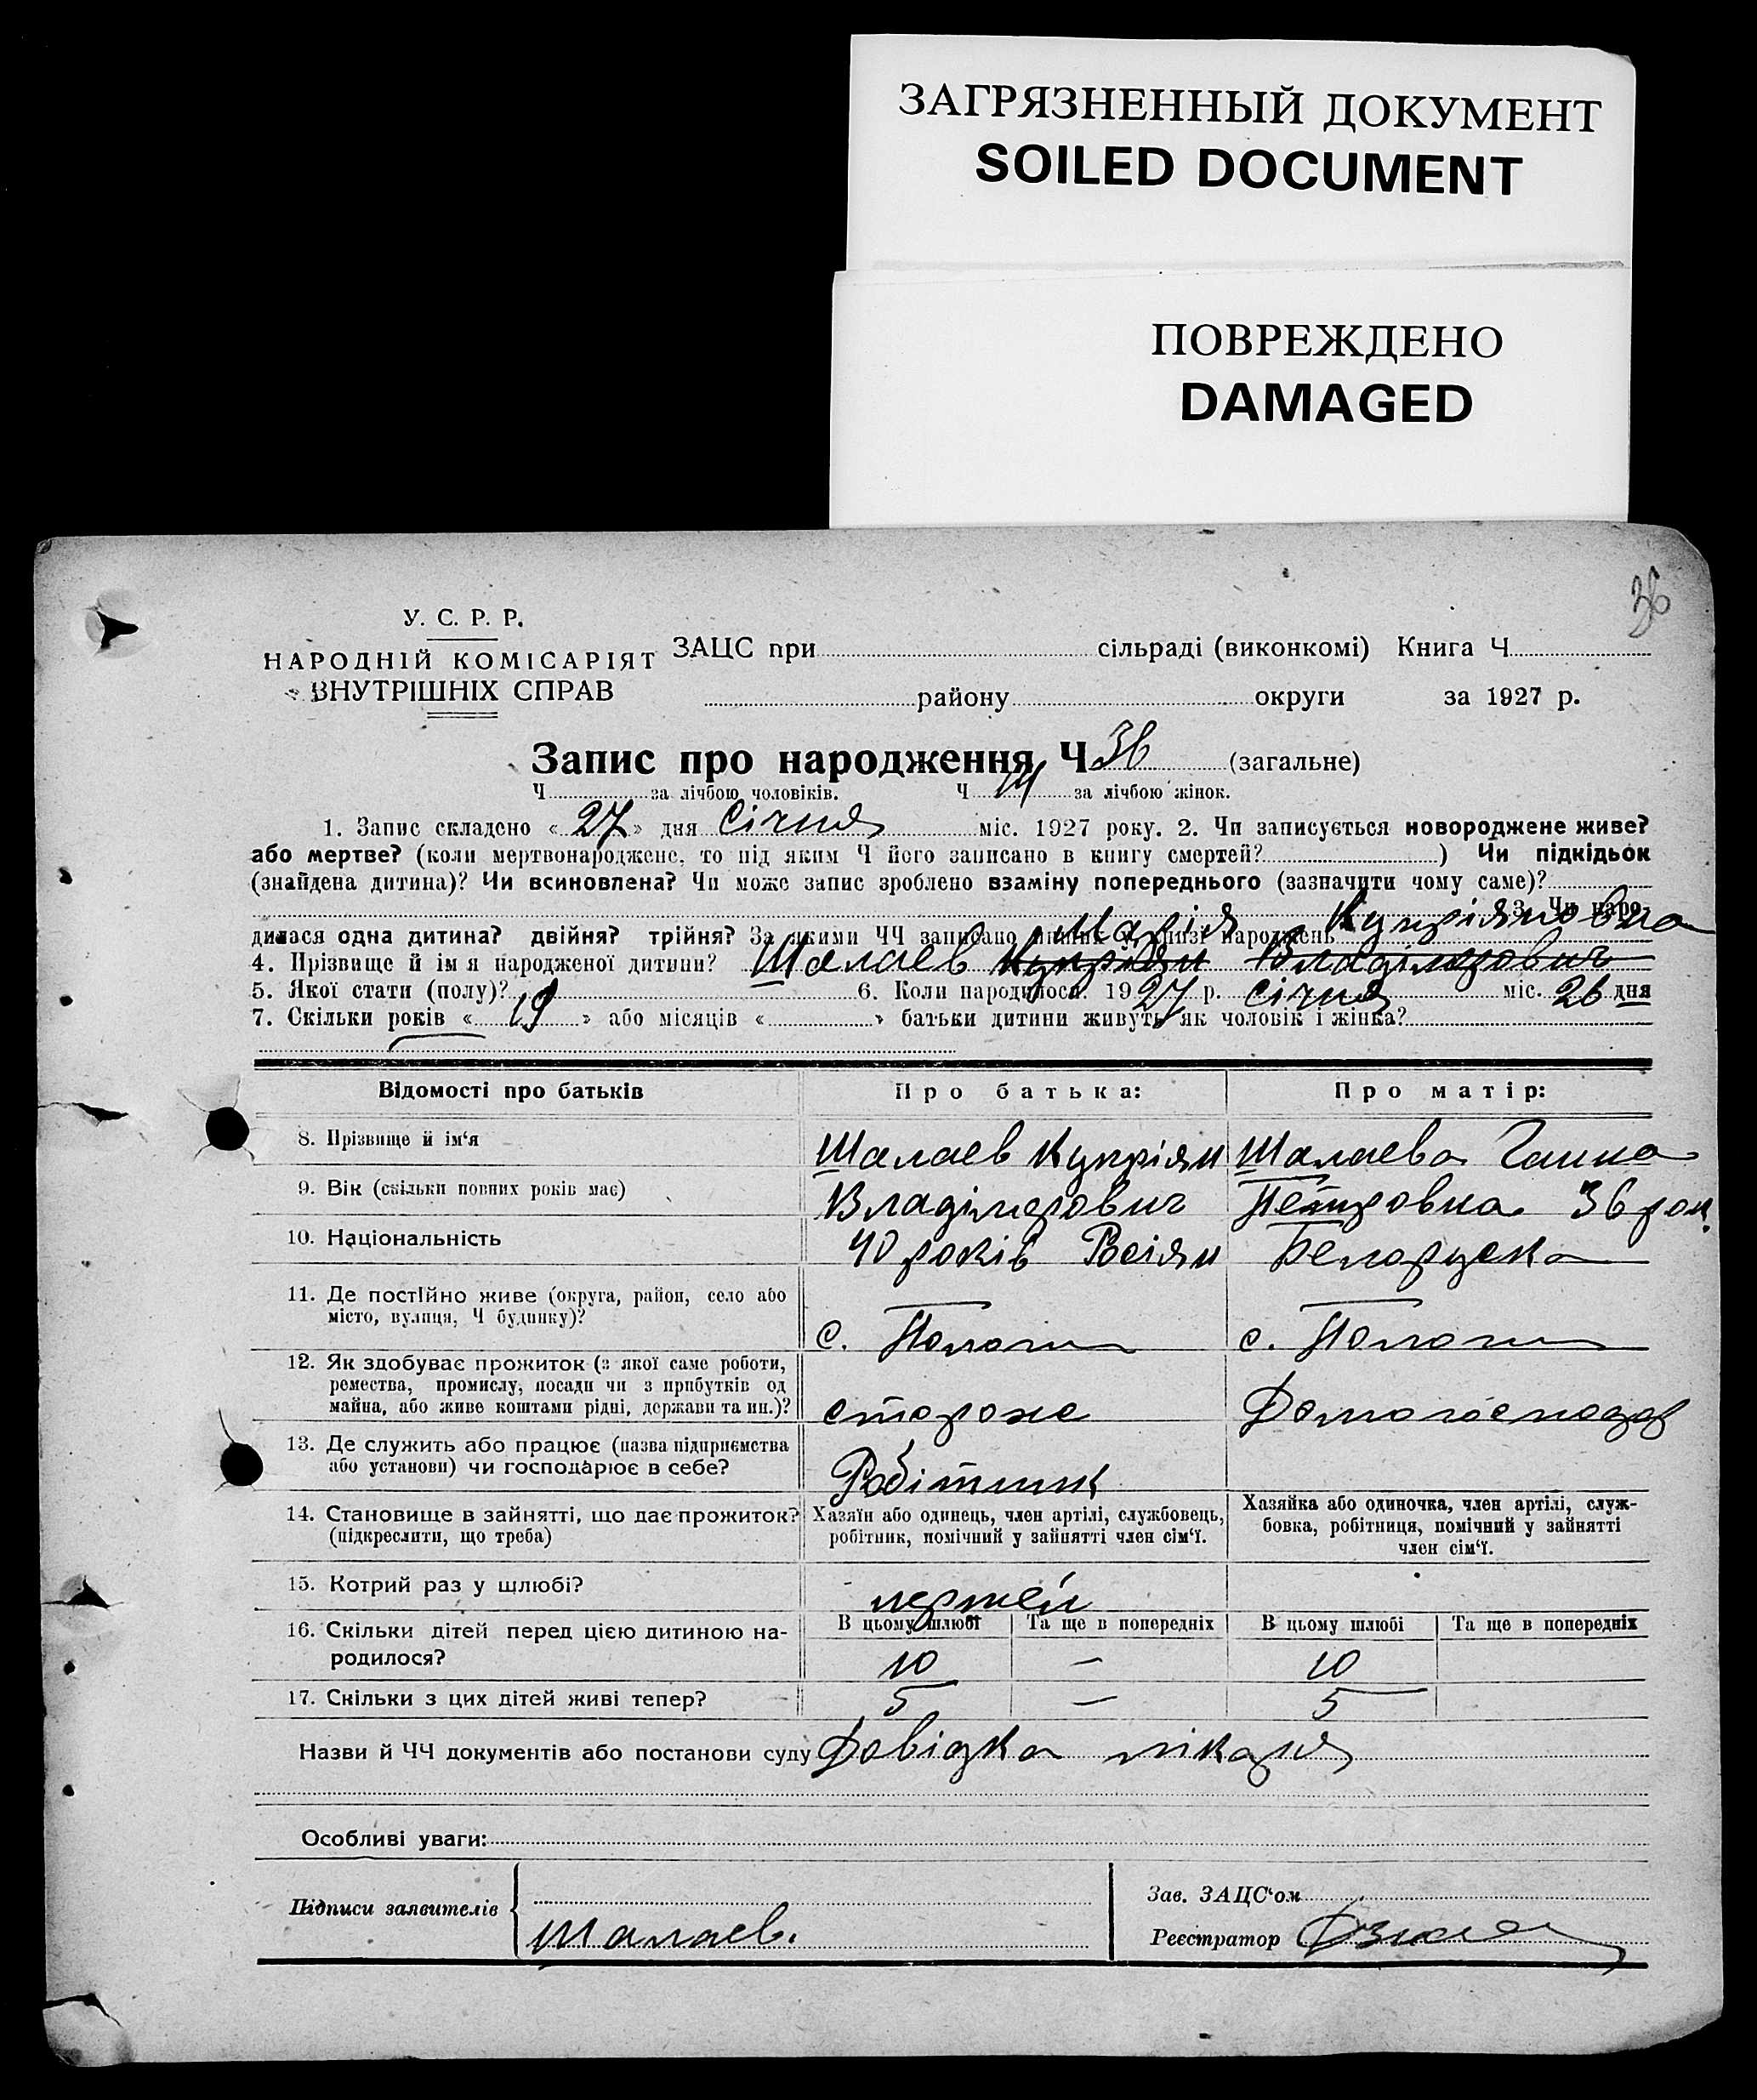 ЗАГРЯЗНЕННЫЙ ДОКУМЕНТ
SOILED DOCUMENT
ПОВРЕЖДЕНО
DAMAGED
36
У. С. Р. Р.
НАРОДНІЙ КОМІСАРІЯТ
ВНУТРІШНІХ СПРАВ
ЗАЦС при сільраді (виконкомі) Книга Ч
району округи за 1927 р.
Запис про народження Ч 36 (загальне)
Ч за лічбою чоловіків. Ч 14 за лічбою жінок.
1. Запис складено « 27 » дня Січня міс. 1927 року. 2. Чи записується новороджене живе?
або мертве? (коли мертвонароджене, то під яким Ч його записано в книгу смертей? ) Чи підкідьок
(знайдена дитина)? Чи всиновлена? Чи може запис зроблено взаміну попереднього (зазначити чому саме)?
3. Чи наро-
дилася одна дитина? двійня? трійня? За якими ЧЧ записано инших у книзі народжень
Марія Купріяновна
4. Прізвище й ім я народженої дитини? Шалаев Купріян Владімірович
5. Якої стати (полу)? 6. Коли народилося. 1927 р. Січня міс. 26 дня
7. Скільки років « 19 » або місяців « » батьки дитини живуть як чоловік і жінка?
Відомості про батьків Про батька: Про матір:
8. Прізвище й ім‘я Шалаев Купріян Шалаева Ганна
9. Вік (скільки повних років має) Владімірович Петровна 36 рок.
10. Національність 40 років Росіян Белоруска
11. Де постійно живе (округа, район, село або
місто, вулиця, Ч будинку)? с. Пологи с. Пологи
12. Як здобуває прожиток (з якої саме роботи,
ремества, промислу, посади чи з прибутків од
майна, або живе коштами рідні, держави та ин.)? сторож Домогосподар
13. Де служить або працює (назва підприємства
або установи) чи господарює в себе? Робітник
14. Становище в зайнятті, що дає прожиток?
(підкреслити, що треба)
Хазяїн або одинець, член артілі, службовець,
робітник, помічний у зайнятті член сім‘ї.
Хазяйка або одиночка, член артілі, служ-
бовка, робітниця, помічний у зайнятті
член сім‘ї.
15. Котрий раз у шлюбі? первей
16. Скільки дітей перед цією дитиною на-
родилося?
В цьому шлюбі Та ще в попередніх В цьому шлюбі Та ще в попередніх
10 — 10
17. Скільки з цих дітей живі тепер? 5 — 5
Назви й ЧЧ документів або постанови суду Довідка лікаря
Особливі уваги:
Підписи заявителів Шалаев.
Зав. ЗАЦС‘ом
Реєстратор